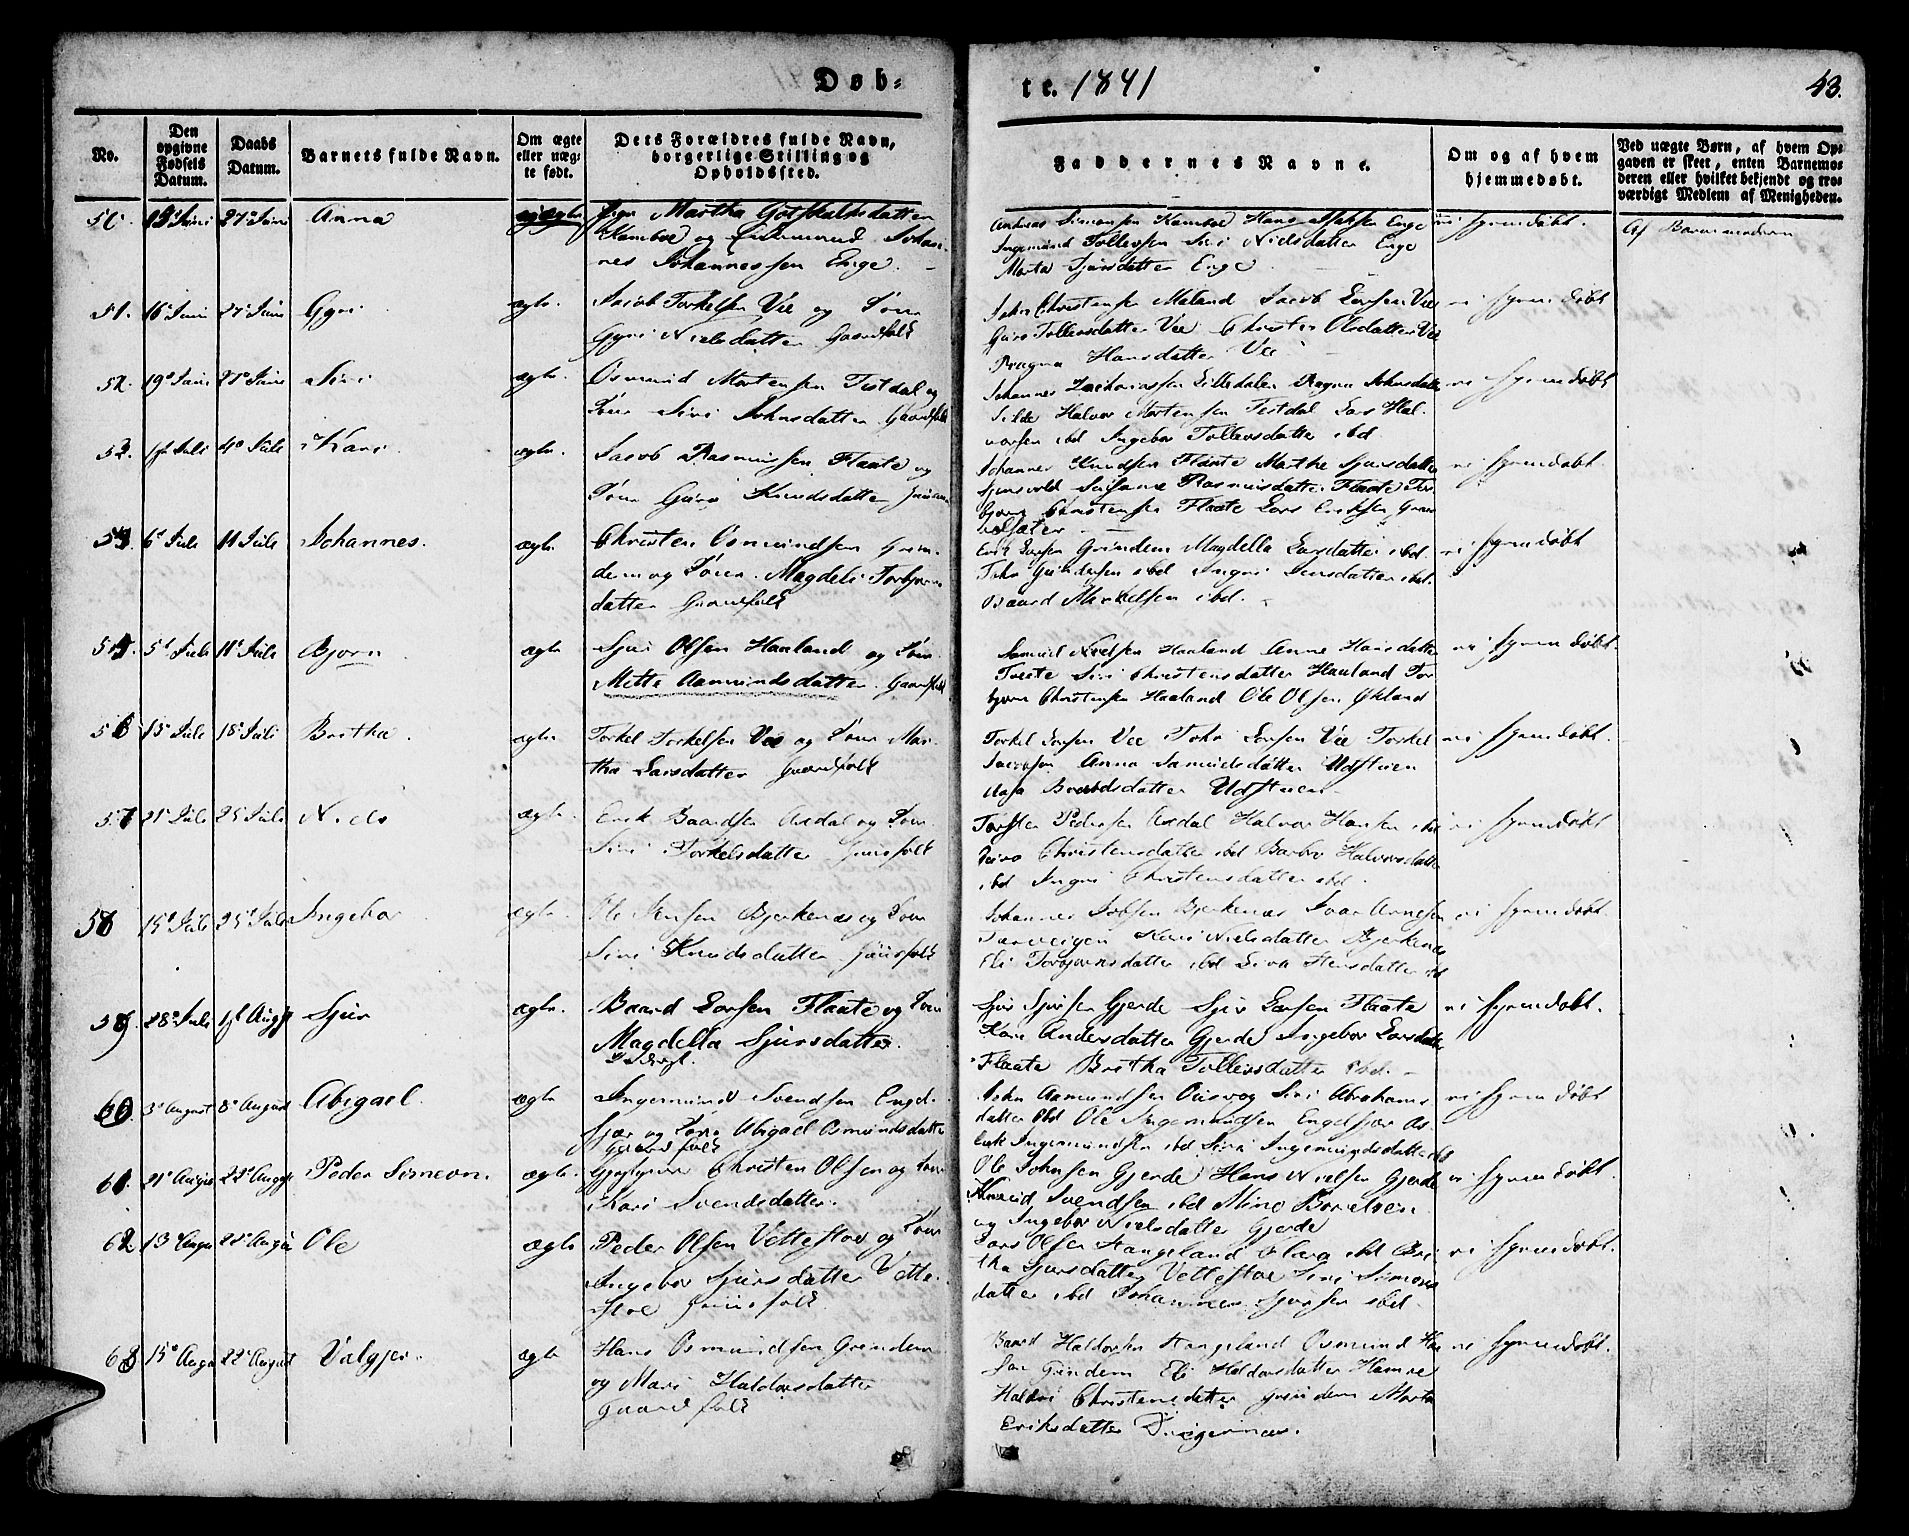 Døb-
te. 1841
43.
No.
Den opgivne Fødsels Datum.
Daabs Datum.
Barnets fulde Navn.
Om ægte eller uæg-te født.
Dets Forældres fulde Navn, borgerlige Stilling og Opholdssted.
Faddernes Navne.
Om og af hvem hjemmedøbt.
Ved uægte Børn, af hvem Op-
gaven er skeet, enten Barnemo-
deren eller hvilket bekjendt og tro-
værdigt Medlem af Menigheden.
50. 27de Juni Anna uægte Pigen Martha Gotskalksdatter
Kambøe og Enkemand Johan-
nes Johannessen Enge.
Andreas Simonsen Kamboe Hans Enge
Ingemund Tollevsen Siri Nielsdatter Enge
Marta Sjursdatter Enge
ei hjemdøbt.
Af Barnemoderen
51. 16de Juni 27de Juni Gyri ægte. Jacob Torkelsen Vee og Kone
Gyri Nielsdatter Gaardfolk
John Christensen Maland Jacob Larsen Vee
Guro Tollevsdatter Vee Christen Olsdatter Vee
Ragna Hansdatter Vee
ei hjemdøbt
52. 19de Juni 27de Juni Siri ægte. Osmund Mortensen Testdal og
Kone Siri Johnsdatter Gaardfolk
Johannes Zachariassen Lilledalen Ragna Johnsdatter
Silde Halvor Mortensen Testdal Lars Hal-
vorsen ibd Ingebor Tollevsdatter ibd.
ei hjemdøbt
53. 1st Juli 4de Juli Kari ægte. Jacob Rasmussen Flaate og
Kone Guro Knudsdatter
Johannes Knudsen Flaate Marthe Sjursdatter
Susanne Rasmusdatter Flaate Tor-
bjørn Christensen Flaate Lars Eriksen
ei hjemdøbt.
54. 6te Juli 11 Juli Johannes. ægte. Christen Osmundsen Grin-
dem og Kone Magdeli Torbjørns-
datter Gaardfolk
Erik Larsen Grindem Magdella Larsdatter ibd.
John ibd Ingri Jensdatter ibd.
Baard Mikkelsen ibd.
ei hjemdøbt
55. 5te Juli 11te Juli Bjørn ægte Sjur Olsen Haaland og Kone
Mette Aamundsdatter. Gaardfolk
Samuel Nielsen Haaland Anne Hansdatter
Tveite Siri Christensdatter Haaland Tor-
bjørn Christensen Haaland Ole Olsen Økland
ei hjemdøbt.
56 15de Juli 18de Juli Britha. ægte. Torkel Torkelsen Vee og Kone Mar-
tha Larsdatter Gaardfolk
Torkel Larsen Vee John Larsen Vee Torkel
Jacobsen Anna Samuelsdatter Udstuen
Aasa Baardsdatter Udstuen
ei hjemdøbt.
57 21de Juli 25 Juli Niels ægte. Erik Baardsen Axdal og Kone
Siri Torkelsdatter Huusfolk
Torsten Pedersen Axdal Halvor Hansen ibd
Christensdatter ibd Barbro Halvorsdatter
ibd Ingri Christensdatter ibd.
ei hjemdøbt
58 15de Juli 25de Juli Ingebor ægte. Ole Jensen Bjerkenæs og Kone
Siri Knudsdatter Huusfolk
Johannes Bjerkenæs Ivar Arnesen
Kari Nielsdatter Bjerkenæs
Eli Torbjørnsdatter ibd Siva Hansdatter ibd
ei hjemdøbt
59. 28de Juli 1st August Sjur ægte. Baard Larsen Flaate og Kone
Magdella Sjursdatter.
Sjur Sjursen Gjerde Sjur Larsen Flaate
Kari Andersdatter Gjerde Ingebor Larsdatter
Flaate Britha Tollevsdatter ibd.
ei hjemdøbt.
60. 3de August 8de August Abigael. ægte Ingemund Svendsen Engel-
sjær og Kone Abigael Osmundsdatter
Gaardfolk
John Aamundsen Øiisvog Siri Abrahams-
datter ibd Ole Ingemundsen Engelsjær As-
lak Ingemundsen ibd Siri Ingemundsdatter ibd
ei hjemdøbt
61. 21de August 22de August Peder Simeon. ægte. Christen Olsen og Kone
Kari Svendsdatter.
Ole Johnsen Gjerde Hans Nielsen Gjerde
Knud Svendsen ibd
og Ingebor Nielsdatter Gjerde
ei hjemdøbt.
62 13de August 22de August Ole ægte Peder Olsen Vettestøe og Kone
Ingebor Sjursdatter Vette-
støe Huusfolk
Lars Olsen Hangeland ibd Bri-
tha Sjursdatter Vettestøe Siri Simons-
datter ibd Johannes Sjursen ibd.
ei hjemdøbt.
63 15de August 22de August Valgjer. ægte Hans Osmundsen Grindem
og Mari Haldorsdatter
Gaardfolk
Baard Haldorsen Hangeland Osmund Han-
sen Grindem Eli Haldorsdatter Hamre
Christensdatter Grindem Marta
Eriksdatter
ei hjemdøbt.